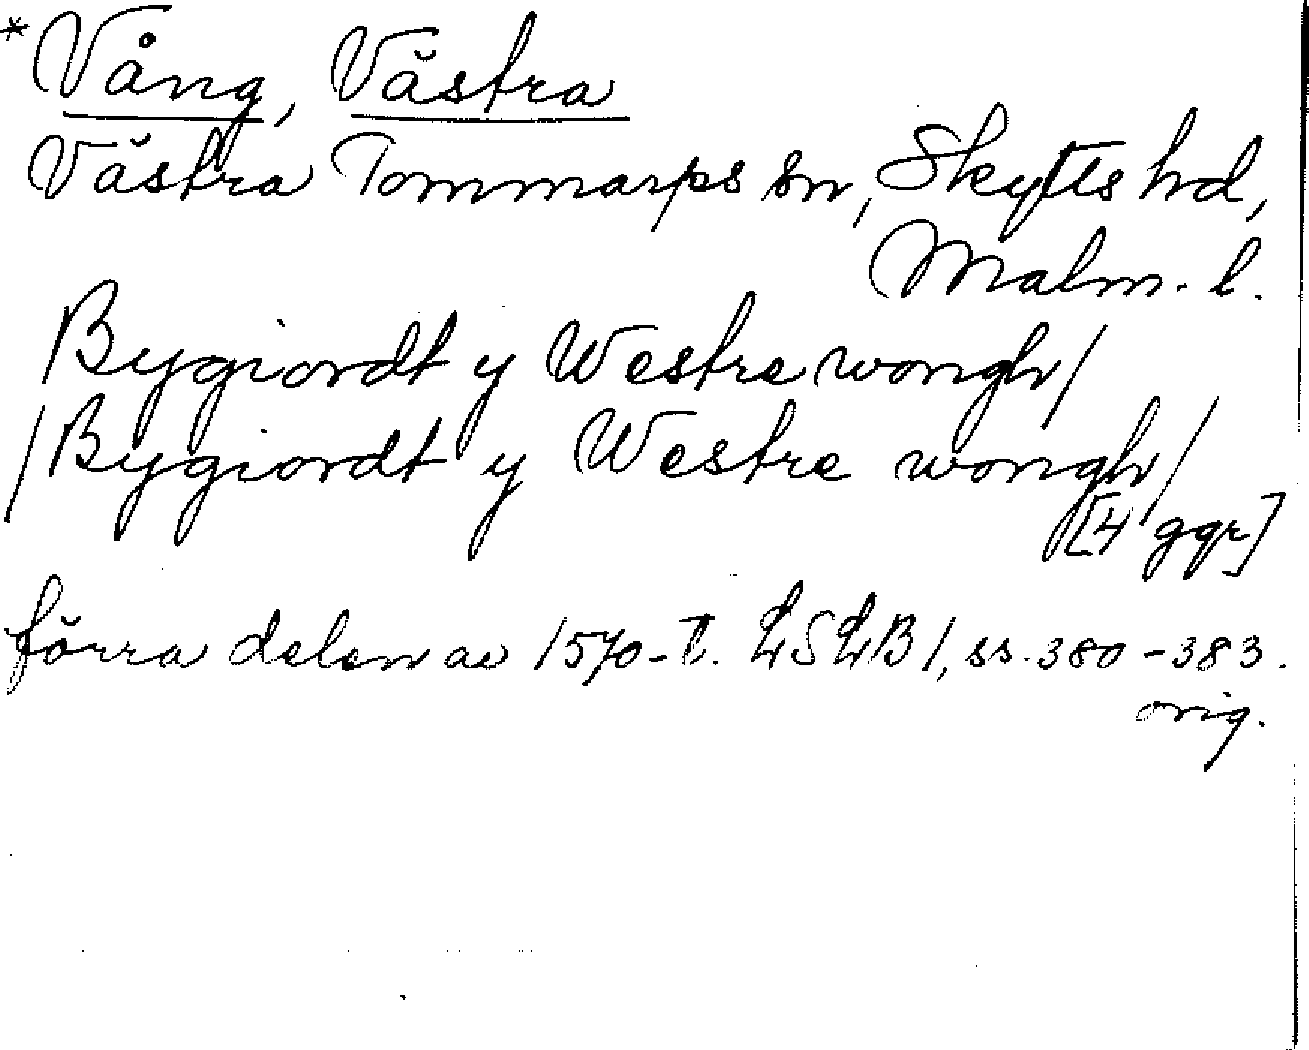 *Vång, Västra
Västra Tommarps sn, Skytts hd,
Malm. l.
Bygiordt y Westre wongh/
/Bygiordt y Westre wongh/
[4 ggr]
förra delen av 1570-t. LSLB 1, ss. 380-383.
orig.